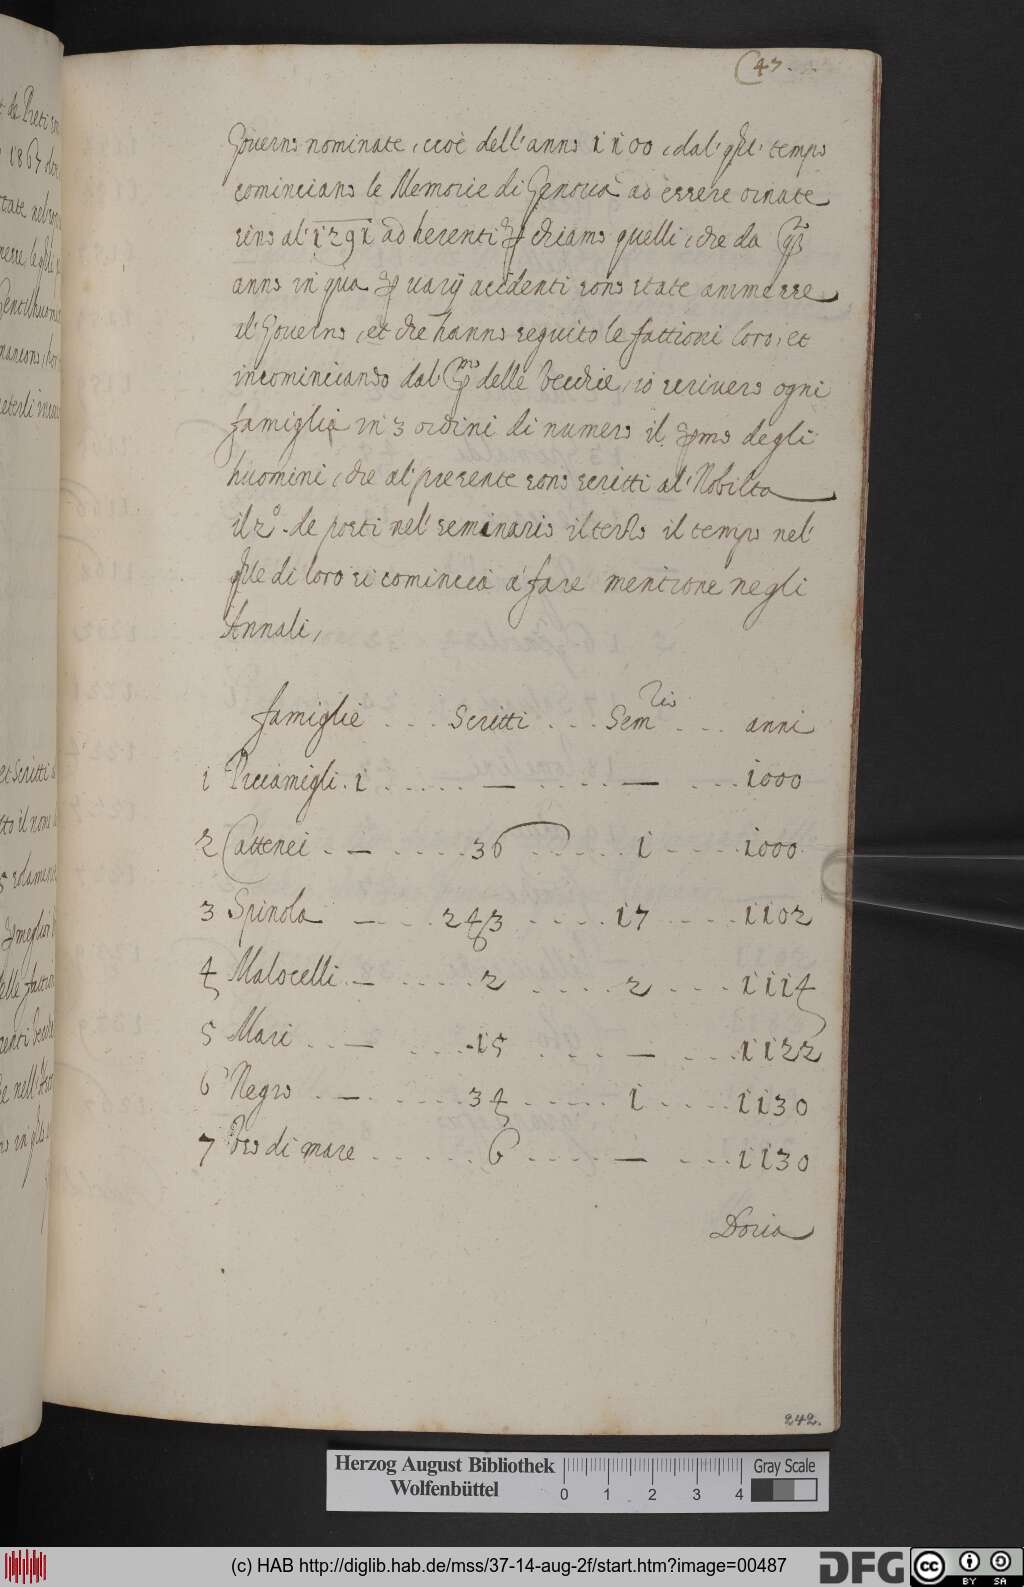 47.
Governo nominate, ccoè dell'anno 1100, dal' qul' tempo
cominciano le Memorie di Genova ad essere ornate
sino al' 1291 adherenti p chiamo quelli, che da qsto
anno in qua p varij accidenti sono state ammesse
il Governo, et che hanno seguito le fattioni loro, et
incominciando dal' pmo delle Vecchie, io scrivero ogni
famiglia in 3 ordini di numero il pmo degli
huomini, che al' presente sono scritti al' Nobilta
il 2º. de posti nel' seminario il terzo il tempo nel'
qle di loro si comincia a' fare mentione negli
Annali,
famiglie . . . Scritti . . . Sem rio . . . anni
1 Piccamigli. 1 . . . . . — . . . . — . . . 1000
2 Cattenei . — . . . . 36 . . . . . 1 . . . . 1000
3 Spinola — . . . 243 . . . . 17 . . . . 1102
4 Malocelli. — . . . . . 2 . . . . 2 . . . 1114
5 Mari . . — . . . . 15 . . . . — . . . 1122
6 Negro . . — . . . . . 34 . . . . . 1 . . . . 1130
7 Vso di mare . . . . . . 6 . . . . — . . . 1130
Doria
242.
Herzog August Bibliothek
Wolfenbüttel
0 1 2 3 4
Gray Scale
(c) HAB http://diglib.hab.de/mss/37-14-aug-2f/start.htm?image=00487
DFG
cc BY SA